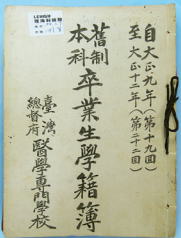 自大正九年(第十九回)
至大正十二年(第二十二回)
舊制
本科
卒業生學籍簿
臺灣
總督府
醫學專門學校